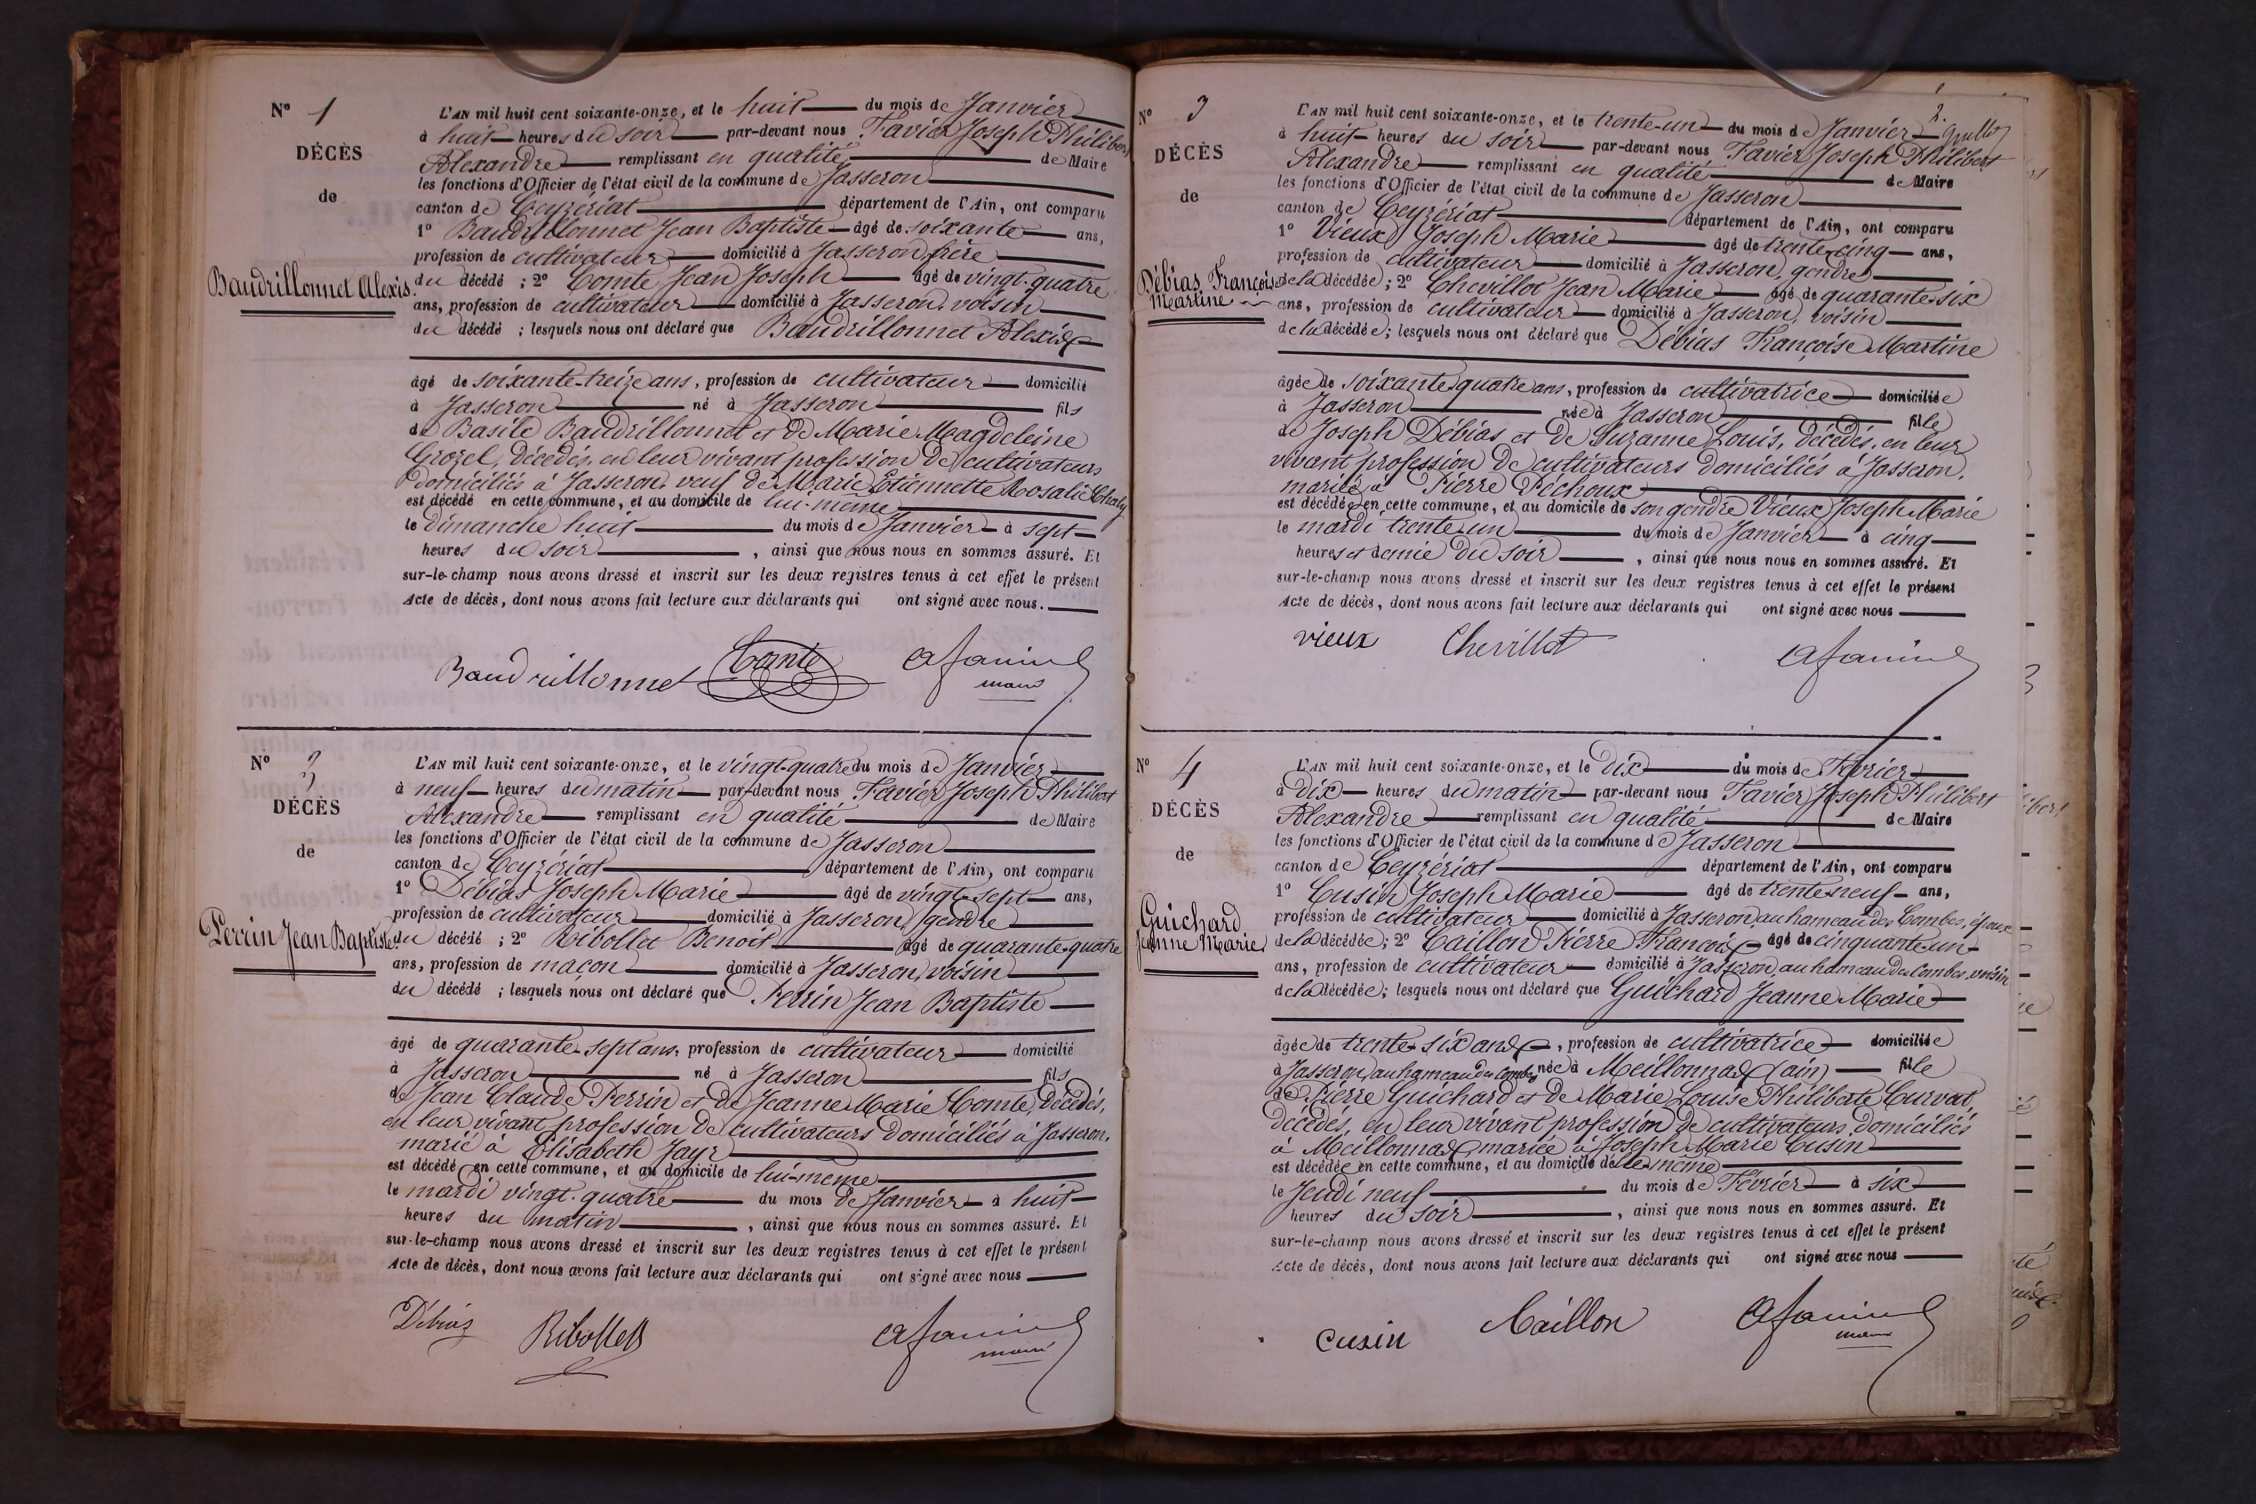 N° 1
DÉCÈS
de
Baudrillonnet Alexis.
L'AN mil huit cent soixante-onze, et le huit du mois de Janvier
à huit heures du soir par-devant nous Favier Joseph Philibert
Alexandre remplissant en qualité de Maire
les fonctions d'Officier de l'état civil de la commune de Jasseron
canton de Ceyzériat département de l'Ain, ont comparu
1° Baudrillonnet Jean Baptiste âgé de soixante ans,
profession de cultivateur domicilié à Jasseron, frère
du décédé ; 2° Comte Jean Joseph âgé de vingt-quatre
ans, profession de cultivateur domicilié à Jasseron, voisin
du décédé ; lesquels nous ont déclaré que Baudrillonnet Alexis
âgé de soixante-treize ans, profession de cultivateur domicilié
à Jasseron né à Jasseron fils
de Basile Baudrillonnet et de Marie Magdeleine
Grozel, décédés, en leur vivant profession de cultivateurs
domiciliés à Jasseron, veuf de Marie Etiennette Rosalie Chaty
est décédé en cette commune, et au domicile de lui-même
le dimanche huit du mois de Janvier à sept
heures du soir , ainsi que nous nous en sommes assuré. Et
sur-le-champ nous avons dressé et inscrit sur les deux registres tenus à cet effet le présent
Acte de décès, dont nous avons fait lecture aux déclarants qui ont signé avec nous.
Baudrillonnet Comte A favier
maire
N° 2
DÉCÈS
de
Perrin Jean Baptiste.
L'AN mil huit cent soixante-onze, et le vingt-quatre du mois de Janvier
à neuf heures du matin par-devant nous Favier Joseph Philibert
Alexandre remplissant en qualité de Maire
les fonctions d'Officier de l'état civil de la commune de Jasseron
canton de Ceyzériat département de l'Ain, ont comparu
1° Débias Joseph Marie âgé de vingt-sept ans,
profession de cultivateur domicilié à Jasseron, gendre
du décédé ; 2° Ribollet Benoit âgé de quarante-quatre
ans, profession de maçon domicilié à Jasseron, voisin
du décédé ; lesquels nous ont déclaré que Perrin Jean Baptiste
âgé de quarante-sept ans, profession de cultivateur domicilié
à Jasseron né à Jasseron fils
de Jean Claude Perrin et de Jeanne Marie Comte, décédés,
en leur vivant profession de cultivateurs domiciliés à Jasseron,
marié à Elisabeth Jayr
est décédé en cette commune, et au domicile de lui-même
le mardi vingt-quatre du mois de Janvier à huit
heures du matin , ainsi que nous nous en sommes assuré. Et
sur-le-champ nous avons dressé et inscrit sur les deux registres tenus à cet effet le présent
Acte de décès, dont nous avons fait lecture aux déclarants qui ont signé avec nous
Débias Ribollet A favier
maire
2.
N° 3
DÉCÈS
de
Débias Françoise
Martine
L'AN mil huit cent soixante-onze, et le trente-un du mois de Janvier
à huit heures du soir par-devant nous Favier Joseph Philibert
Alexandre remplissant en qualité de Maire
les fonctions d'Officier de l'état civil de la commune de Jasseron
canton de Ceyzériat département de l'Ain, ont comparu
1° Vieux Joseph Marie âgé de trente-cinq ans,
profession de cultivateur domicilié à Jasseron, gendre
de la décédée ; 2° Chevillot Jean Marie âgé de quarante-six
ans, profession de cultivateur domicilié à Jasseron, voisin
de la décédée ; lesquels nous ont déclaré que Débias Françoise Martine
âgée de soixante-quatre ans, profession de cultivatrice domiciliée
à Jasseron née à Jasseron fille
de Joseph Débias et de Suzanne Louis, décédés, en leur
vivant profession de cultivateurs domiciliés à Jasseron,
mariée à Pierre Péchoux
est décédée en cette commune, et au domicile de son gendre Vieux Joseph Marie
le mardi trente-un du mois de Janvier à cinq
heures et demie du soir , ainsi que nous nous en sommes assuré. Et
sur-le-champ nous avons dressé et inscrit sur les deux registres tenus à cet effet le présent
Acte de décès, dont nous avons fait lecture aux déclarants qui ont signé avec nous
vieux Chevillot A favier
N° 4
DÉCÈS
de
Guichard
Jeanne Marie
L'AN mil huit cent soixante-onze, et le dix du mois de Février
à dix heures du matin par-devant nous Favier Joseph Philibert
Alexandre remplissant en qualité de Maire
les fonctions d'Officier de l'état civil de la commune de Jasseron
canton de Ceyzériat département de l'Ain, ont comparu
1° Cusin Joseph Marie âgé de trente-neuf ans,
profession de cultivateur domicilié à Jasseron, au hameau des Combes, époux
de la décédée ; 2° Caillon Pierre François âgé de cinquante-un
ans, profession de cultivateur domicilié à Jasseron, au hameau des Combes, voisin
de la décédée ; lesquels nous ont déclaré que Guichard Jeanne Marie
âgée de trente-six ans, profession de cultivatrice domiciliée
à Jasseron, au hameau des Combes née à Meillonnas (ain) fille
de Pierre Guichard et de Marie Louise Philiberte Curvat,
décédés, en leur vivant profession de cultivateurs domiciliés
à Meillonnas, mariée à Joseph Marie Cusin
est décédée en cette commune, et au domicile d'elle-même
le Jeudi neuf du mois de Février à six
heures du soir , ainsi que nous nous en sommes assuré. Et
sur-le-champ nous avons dressé et inscrit sur les deux registres tenus à cet effet le présent
Acte de décès, dont nous avons fait lecture aux déclarants qui ont signé avec nous
cusin Caillon A favier
maire